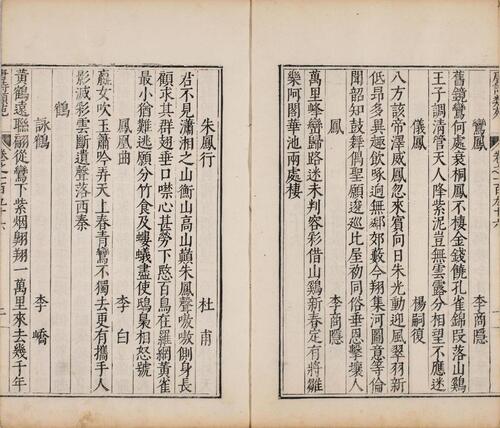 鸞鳳　李商隱
舊鏡鸞何處衰桐鳳不棲金錢饒孔雀錦段落山鷄
王子調清管天人降紫泥豈無雲露分相望不應迷
儀鳳　楊嗣復
八方該帝澤威鳳忽來賓向日朱光動迎風翠羽新
低昂多異趣飲啄迥無鄰郊藪今翔集河圖意等倫
聞韶知鼓舞偶聖願逡巡比屋初同俗垂恩擊壤人
鳳　李商隱
萬里峰巒歸路迷未判容彩借山鷄新春定有將雛
樂阿閣華池兩處棲
朱鳳行　杜甫
君不見瀟湘之山衡山高山巔朱鳳聲嗷嗷側身長
顧求其群翅垂口噤心甚勞下愍百鳥在羅網黃雀
最小猶難逃願分竹食及螻蟻盡使鴟梟相怒號
鳳凰曲　李白
嬴女吹玉簫吟弄天上春青鸞不獨去更有攜手人
影滅彩雲斷遺聲落西秦
鶴
詠鶴　李嶠
黃鶴遠聯翩從鸞下紫烟翱翔一萬里來去幾千年